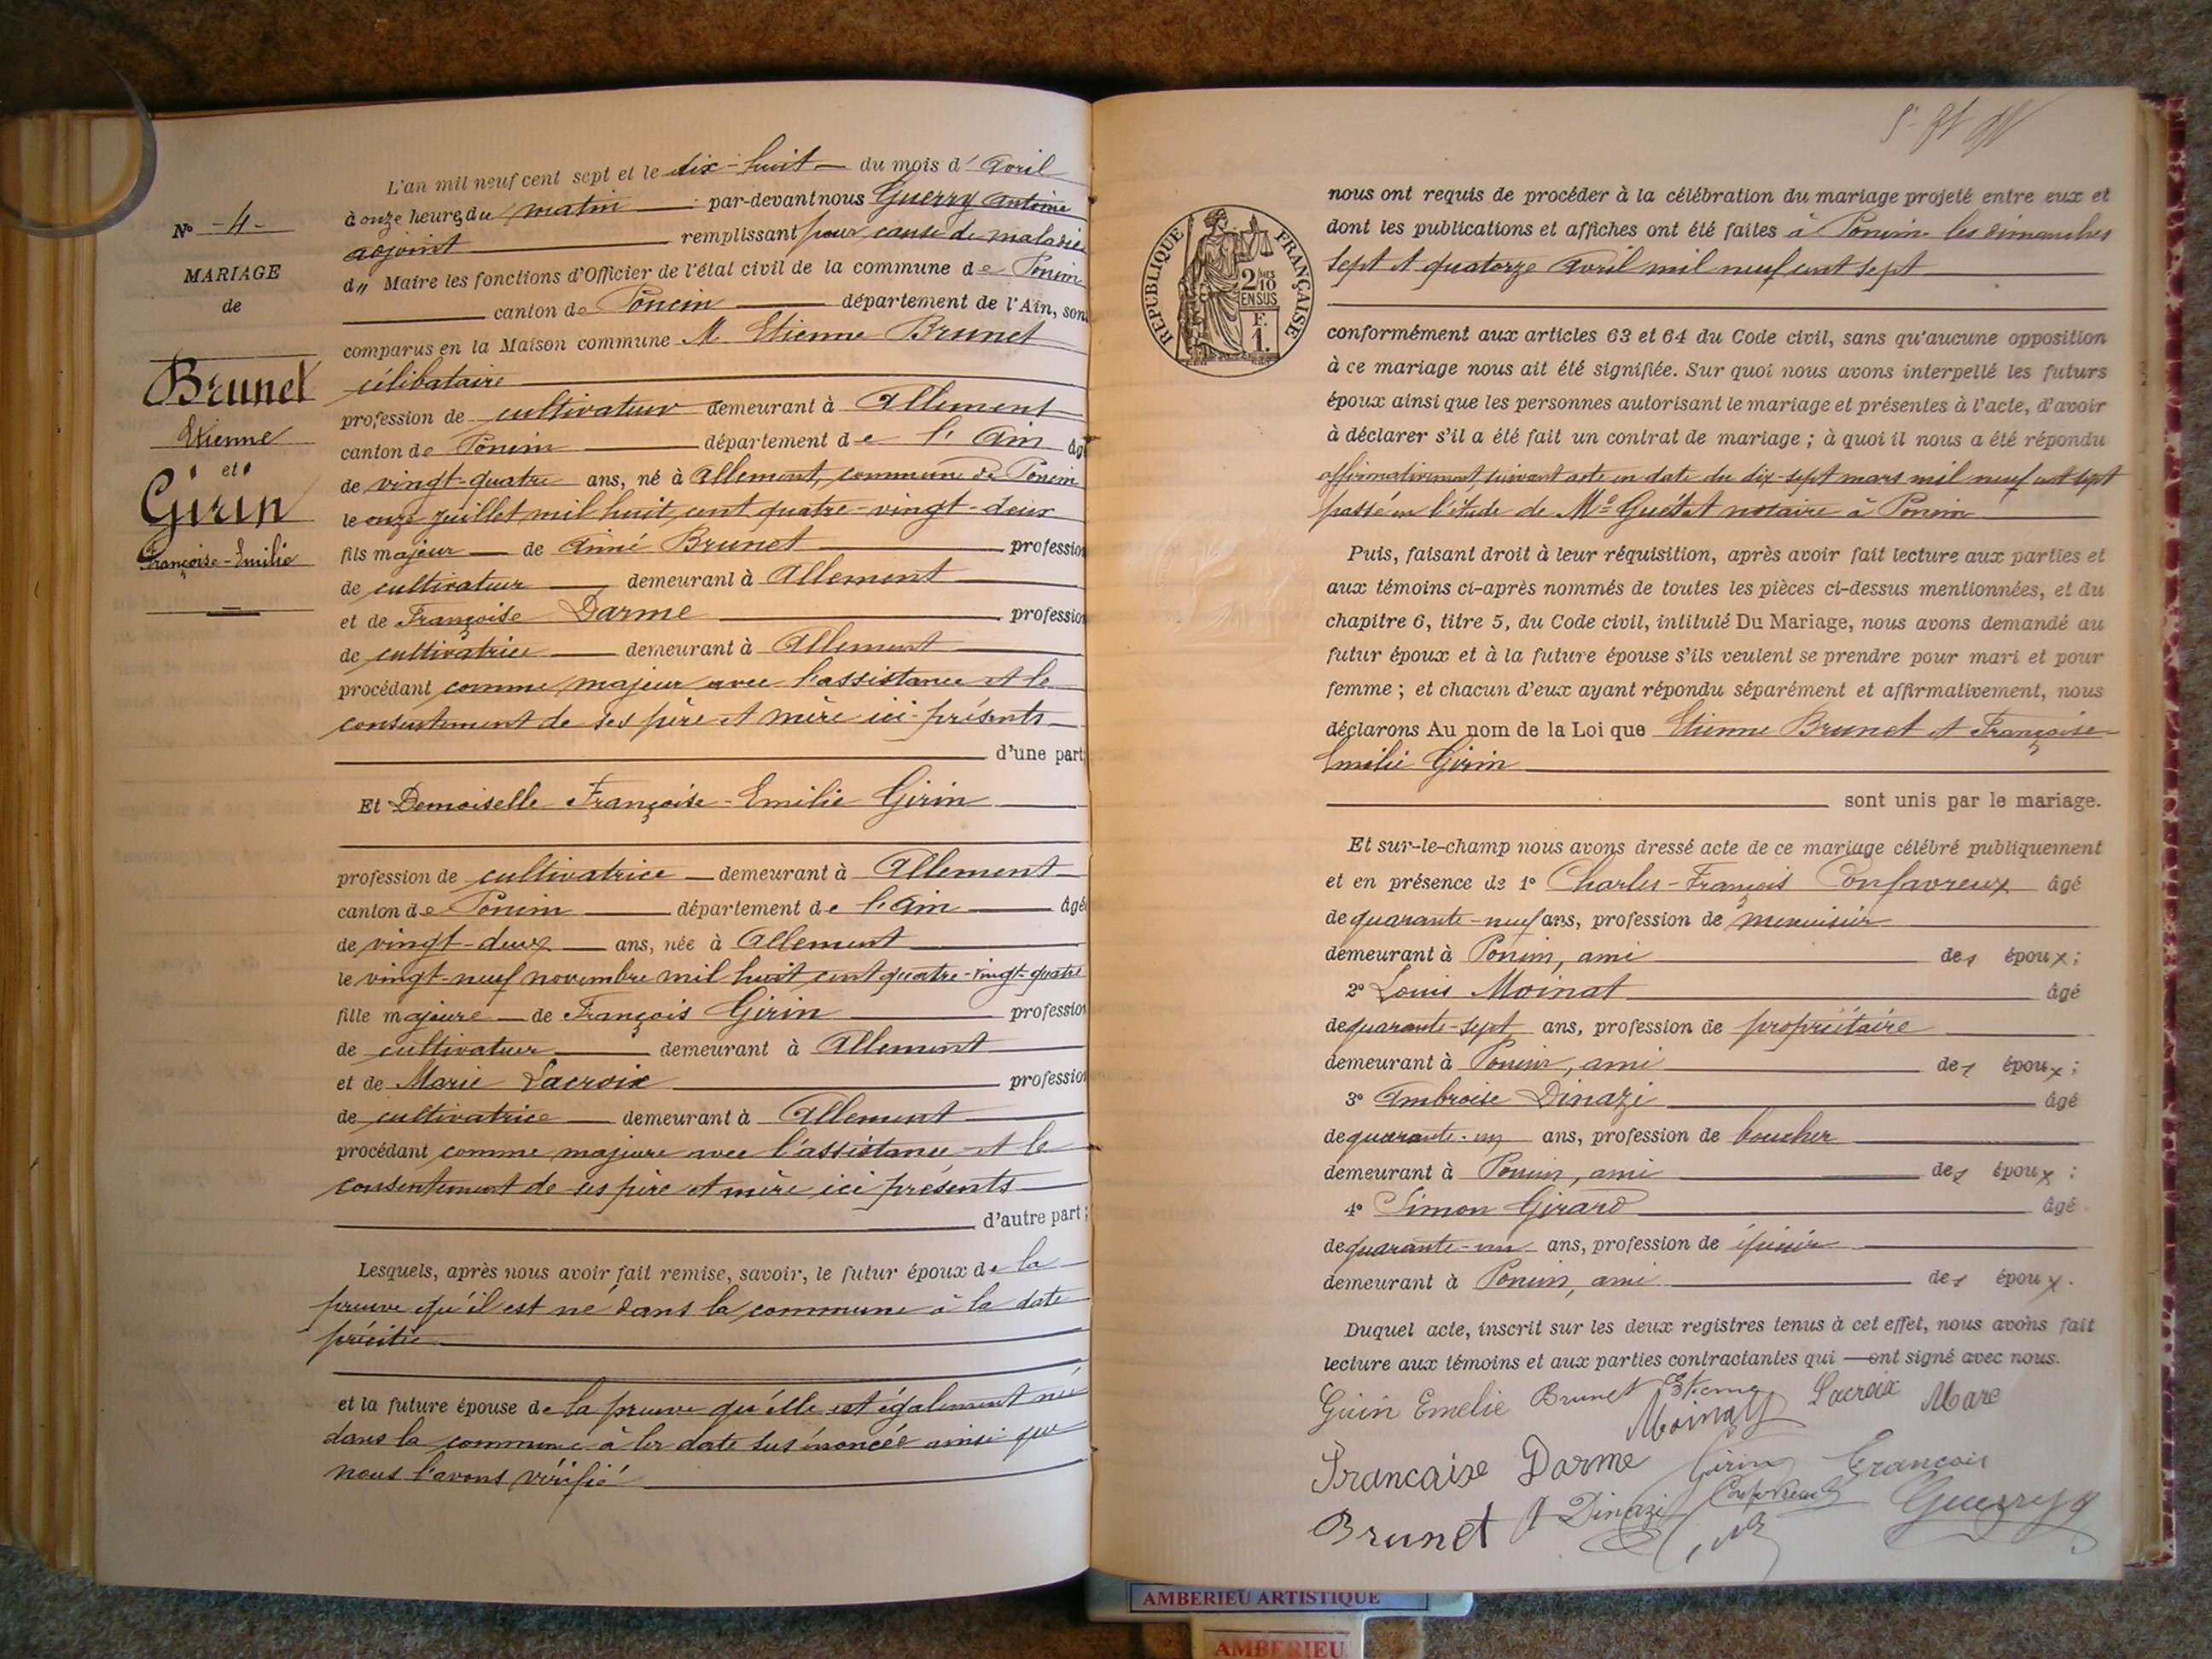 N° -4-
MARIAGE
de
Brunet
Etienne
et
Girin
Françoise-Emilie
L'an mil neuf cent sept et le dix-huit du mois d' Avril
à onze heures du matin par-devant nous Guerry Antoine
adjoint remplissant pour cause de maladie
d" Maire les fonctions d'Officier de l'état civil de la commune de Poncin
canton de Poncin département de l'Ain, son
comparus en la Maison commune M Etienne Brunet
célibataire
profession de cultivateur demeurant à Allement
canton de Poncin département de l'Ain âg
de vingt-quatre ans, né à Allement, commune de Poncin
le onze juillet mil huit cent quatre-vingt-deux
fils majeur de Aimé Brunet profession
de cultivateur demeurant à Allement
et de Françoise Darme profession
de cultivatrice demeurant à Allement
procédant comme majeur avec l'assistance et le
consentement de ses père et mère ici-présents
d'une part
Et Demoiselle Françoise-Emilie Girin
profession de cultivatrice demeurant à Allement
canton de Poncin département de l'Ain âgé
de vingt-deux ans, née à Allement
le vingt-neuf novembre mil huit cent quatre-vingt-quatre
fille majeure de François Girin profession
de cultivateur demeurant à Allement
et de Marie Lacroix profession
de cultivatrice demeurant à Allement
procédant comme majeure avec l'assistance et le
consentement de ses père et mère ici présents
d'autre part ;
Lesquels, après nous avoir fait remise, savoir, le futur époux de la
preuve qu'il est né dans la commune à la date
précitée
et la future épouse de la preuve qu'elle est également née
dans la commune à la date sus énoncée ainsi que
nous l'avons vérifié
RÉPUBLIQUE FRANÇAISE
2/10
EN SUS
F.
1.
nous ont requis de procéder à la célébration du mariage projeté entre eux et
dont les publications et affiches ont été faites à Poncin les dimanches
sept et quatorze Avril mil neuf cent sept
conformément aux articles 63 et 64 du Code civil, sans qu'aucune opposition
à ce mariage nous ait été signifiée. Sur quoi nous avons interpellé les futurs
époux ainsi que les personnes autorisant le mariage et présentes à l'acte, d'avoir
à déclarer s'il a été fait un contrat de mariage ; à quoi il nous a été répondu
affirmativement suivant acte en date du dix-sept mars mil neuf cent sept
passé en l'étude de Me Guétat notaire à Poncin
Puis, faisant droit à leur réquisition, après avoir fait lecture aux parties et
aux témoins ci-après nommés de toutes les pièces ci-dessus mentionnées, et du
chapitre 6, titre 5, du Code civil, intitulé Du Mariage, nous avons demandé au
futur époux et à la future épouse s'ils veulent se prendre pour mari et pour
femme ; et chacun d'eux ayant répondu séparément et affirmativement, nous
déclarons Au nom de la Loi que Etienne Brunet et Françoise
Emilie Girin
sont unis par le mariage.
Et sur-le-champ nous avons dressé acte de ce mariage célébré publiquement
et en présence de 1° Charles-François Confavreux âgé
de quarante-neuf ans, profession de menuisier
demeurant à Poncin, ami des époux ;
2° Louis Moinat âgé
de quarante-sept ans, profession de propriétaire
demeurant à Poncin, ami des époux ;
3° Ambroise Dinazi âgé
de quarante-un ans, profession de boucher
demeurant à Poncin, ami des époux ;
4° Simon Girard âgé
de quarante-un ans, profession de épicier
demeurant à Poncin, ami des époux.
Duquel acte, inscrit sur les deux registres tenus à cet effet, nous avons fait
lecture aux témoins et aux parties contractantes qui ont signé avec nous.
Girin Emelie Brunet Etienne Lacroix Marc
Moinat
Francaise Darme Girin Francois
Brunet A Dinazi Confavreux Guerry a
AMBERIEU ARTISTIQUE
AMBERIEU